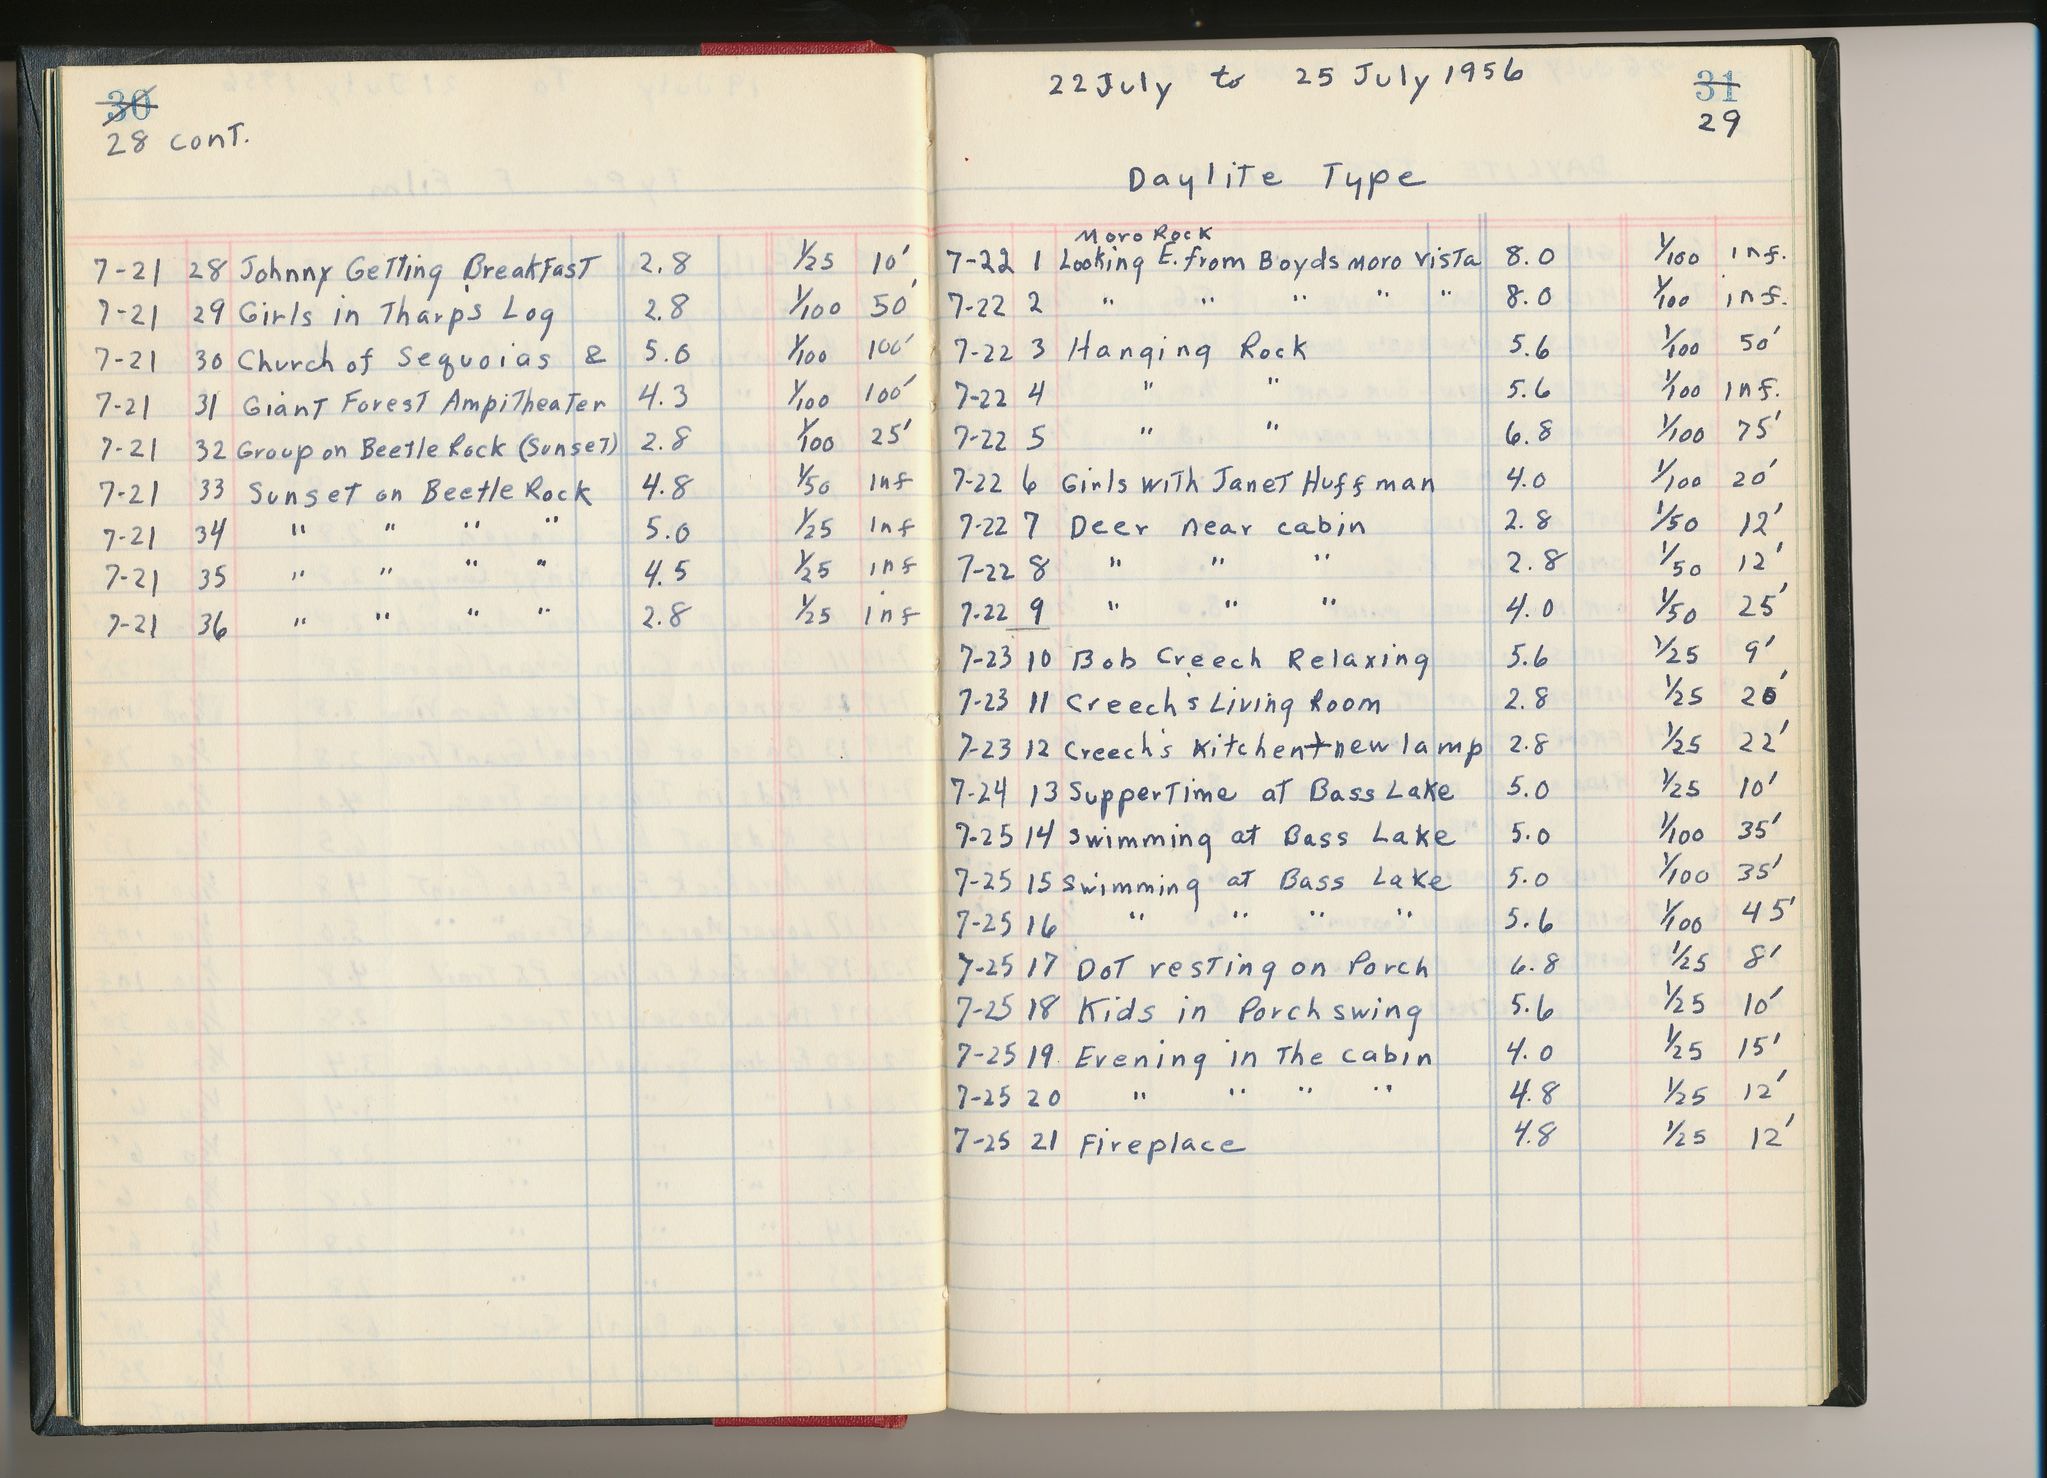 30
28 cont.
7-21 28 Johnny Getting Breakfast 2.8 1/25 10'
7-21 29 Girls in Tharp's Log 2.8 1/100 50'
7-21 30 Church of Sequoias & 5.0 1/100 100'
7-21 31 Giant Forest Ampitheater 4.3 1/100 100'
7-21 32 Group on Beetle Rock (Sunset) 2.8 1/100 25'
7-21 33 Sunset on Beetle Rock 4.8 1/50 inf
7-21 34 " " " " 5.0 1/25 inf
7-21 35 " " " " 4.5 1/25 inf
7-21 36 " " " " 2.8 1/25 inf
22 July to 25 July 1956
31
29
Daylite Type
Moro Rock
7-22 1 Looking E. from Boyds Moro Vista 8.0 1/100 inf.
7-22 2 " " " " " 8.0 1/100 inf.
7-22 3 Hanging Rock 5.6 1/100 50'
7-22 4 " " 5.6 1/100 inf.
7-22 5 " " 6.8 1/100 75'
7-22 6 Girls with Janet Huffman 4.0 1/100 20'
7-22 7 Deer near cabin 2.8 1/50 12'
7-22 8 " " " 2.8 1/50 12'
7-22 9 " " " 4.0 1/50 25'
7-23 10 Bob Creech Relaxing 5.6 1/25 9'
7-23 11 Creech's Living Room 2.8 1/25 20'
7-23 12 Creech's Kitchen + new lamp 2.8 1/25 22'
7-24 13 Suppertime at Bass Lake 5.0 1/25 10'
7-25 14 Swimming at Bass Lake 5.0 1/100 35'
7-25 15 Swimming at Bass Lake 5.0 1/100 35'
7-25 16 " " " " 5.6 1/100 45'
7-25 17 Dot resting on Porch 6.8 1/25 8'
7-25 18 Kids in Porch swing 5.6 1/25 10'
7-25 19 Evening in the cabin 4.0 1/25 15'
7-25 20 " " " " 4.8 1/25 12'
7-25 21 Fireplace 4.8 1/25 12'